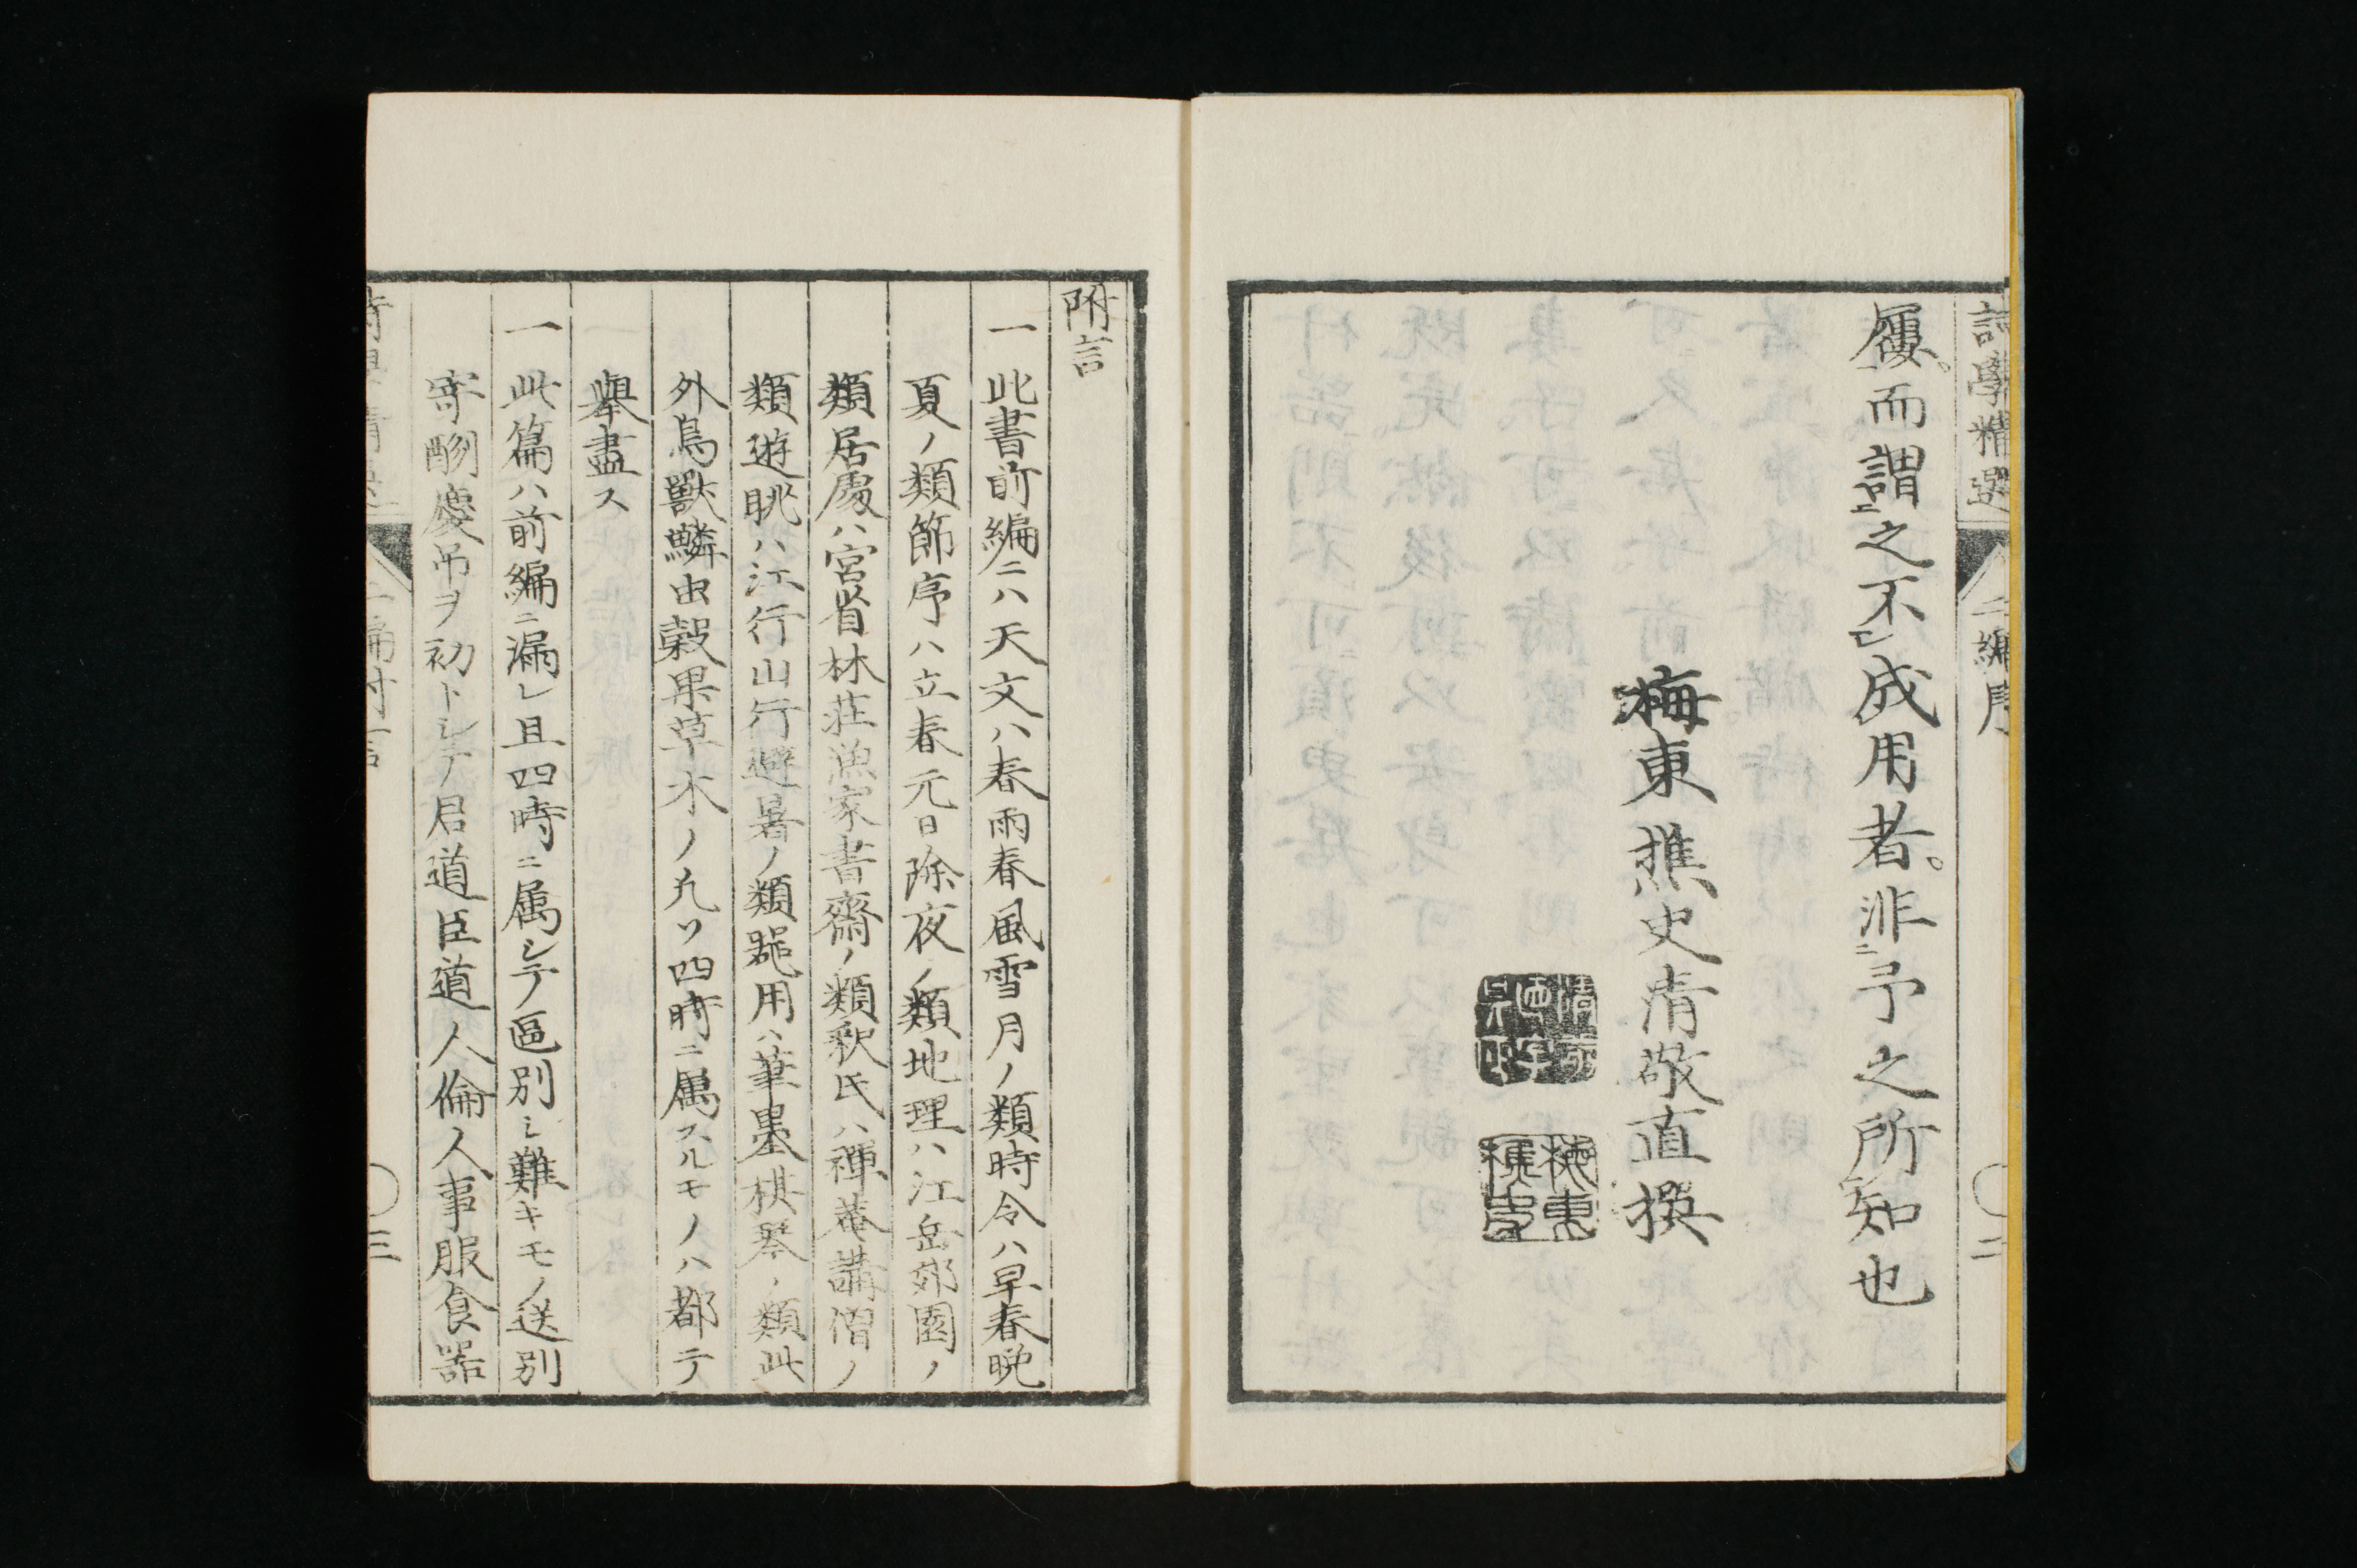 詩學精選 二編序 二
屨。而謂ニ之不レ成用者。非ニ予之所レ知也
梅東樵史清敬直撰
梅東樵史
附言
一 此書前編ニハ天文ハ春雨春風雪月ノ類時令ハ早春晩
夏ノ類節序ハ立春元日除夜ノ類地理ハ江岳郊園ノ
類居處ハ宮省林莊漁家書齋ノ類釈氏ハ禅菴講僧ノ
類遊眺ハ江行山行避暑ノ類器用ハ筆墨棋琴ノ類此
外鳥獸鱗虫穀果草木ノ凡ソ四時ニ属スルモノハ都テ
擧盡ス
一 此篇ハ前編ニ漏レ且四時ニ属シテ區別シ難キモノ送別
寄酬慶吊ヲ初トシテ君道臣道人倫人事服食器
三